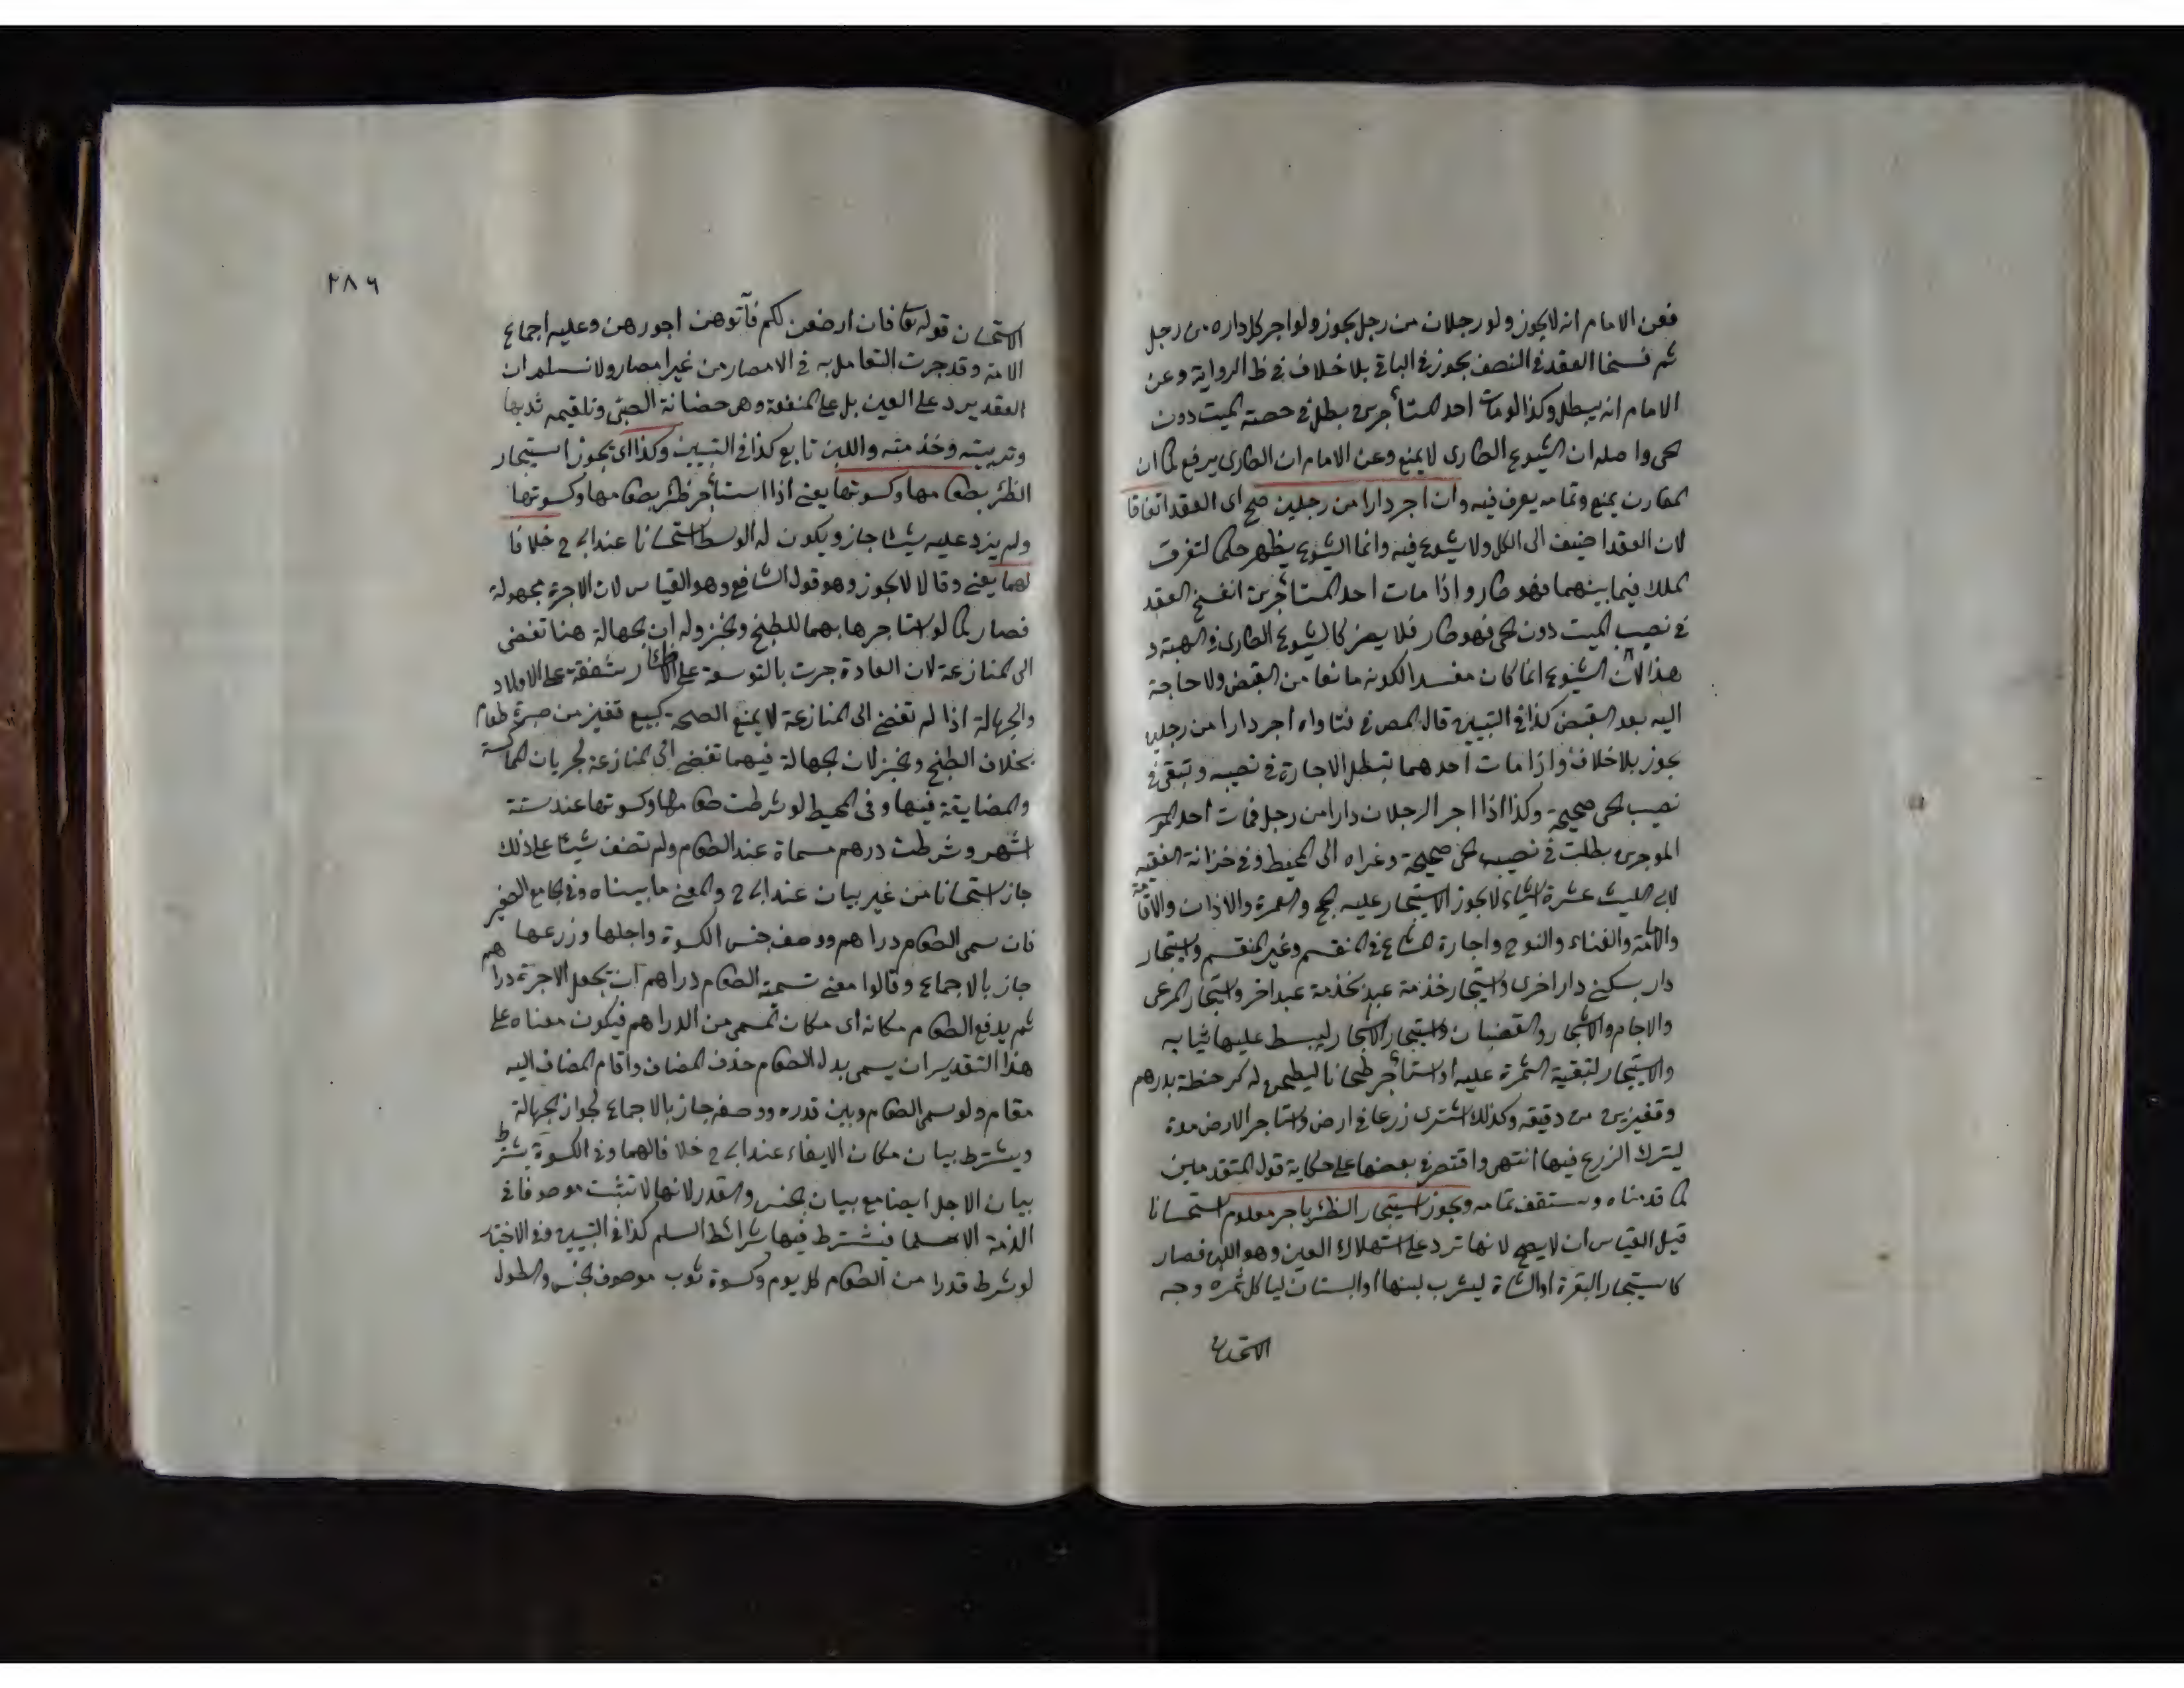 فعن الامام انه لا يجوز ولو رجلان من رجل يجوز ولو اجر كل داره من رجل
ثم فسخا العقد في النصف يجوز في الباقي بلا خلاف في ظ الرواية وعن
الامام انه يبطل وكذا لو مات احد المستأجرين بطل في حصة الميت دون
الحي واصله ان الشيوع الطارى لا يمنع وعن الامام ان الطارى يرفع كما ان
المقارن يمنع وتمامه يعرف فيه وان اجر دارا من رجلين صح اى العقد اتفاقا
لان العقد اضيف الى الكل ولا شيوع فيه وانما الشيوع يظهر حكما لتفرق
الملك فيما بينهما فهو طار واذا مات احد المستأجرين انفسخ العقد
في نصيب الميت دون الحي فهو طار فلا يضر كالشيوع الطارى في الهبة و
هذا لان الشيوع انما كان مفسدا لكونه مانعا من القبض ولا حاجة
اليه بعد القبض كذا في التبيين قال المص في فتاواه اجر دارا من رجلين
يجوز بلا خلاف واذا مات احدهما تبطل الاجارة في نصيبه وتبقى في
نصيب الحي صحيحة وكذا اذا اجر الرجلان دارا من رجل فمات احد المو
الموجرين بطلت في نصيبه الحي صحيحة وعزاه الى المحيط وفي خزانة الفقيه
لابي الليث عشرة اشياء لا يجوز الاستيجار عليه الحج والعمرة والاذان والاقامة
والامامة والغناء والنوح واجارة المشاع في المنقسم وغير المنقسم واستيجار
دار بسكنى دار اخرى واستيجار خذمة عبد بخذمة عبد اخر واستيجار المرعى
والاجام والاشجار والقضبان واستيجار الاشجار ليبسط عليها ثيابه
والاستيجار لتبقية الثمرة عليه او استأجر طحانا ليطحن له كر حنطة بدرهم
وقفيزين من دقيقه وكذلك اشترى زرعا في ارض واستاجر الارض مدة
ليترك الزرع فيها انتهى واقتصر في بعضها على حكاية قول المتقدمين
كما قدمناه وستقف تمامه ويجوز استيجار الظئر باجر معلوم استحسانا
قيل القياس ان لا يصح لانها ترد على استهلاك العين وهو اللبن فصار
كاستيجار البقرة او الشاة ليشرب لبنها او البستان لياكل ثمره وجه
الاستحسان
٢٨٦
الاستحسان قوله تعا فان ارضعن لكم فآتوهن اجورهن وعليه اجماع
الامة وقد جرت التعامل به في الامصار من غير امصار ولا نسلم ان
العقد يرد على العين بل على المنفعة وهى حضانة الصبى وتلقيمه ثديها
وتربيته وخذمته واللبن تابع كذا في التبيين وكذا اى يجوز استيجار
الظئر بطعامها وكسوتها يعنى اذا استأجر ظئر بطعامها وكسوتها
ولم يزد عليه شيئا جاز ويكون له الوسط استحسانا عند ابى ح خلافا
لهما يعنى وقالا لا يجوز وهو قول الشافعى وهو القياس لان الاجرة مجهولة
فصار كما لو استاجرها بهما للطبخ والخبز وله ان الجهالة هنا تفضى
الى المنازعة لان العادة جرت بالتوسعة على الاظار شفقة على الاولاد
والجهالة اذا لم تفضى الى المنازعة لا يمنع الصحة كبيع قفيز من صبرة طعام
بخلاف الطبخ والخبز لان الجهالة فيهما تفضى الى المنازعة لجريان المماكسة
والمضايقة فيها وفى المحيط لو شرطت طعامها وكسوتها عند ستة
اشهر وشرطت درهم مسماة عند الطعام ولم تضف شيئا على ذلك
جاز استحسانا من غير بيان عند ابى ح والمعنى ما بيناه وفى الجامع الصغير
فان سمى الطعام دراهم ووصف جنس الكسوة واجلها وزرعها
جاز بالاجماع وقالوا معنى تسمية الطعام دراهم ان يجعل الاجرة دراهم
ثم يدفع الطعام مكانه اى مكان المسمى من الدراهم فيكون معناه على
هذا التقدير ان يسمى بدل الطعام حذف المضاف واقام المضاف اليه
مقامه ولو سمى الطعام وبين قدره ووصفه جاز بالاجماع لجواز الجهالة
ويشترط بيان مكان الايفاء عند ابى ح خلافا لهما وفى الكسوة يشترط
بيان الاجل ايضا مع بيان الجنس والقدر لانها لا تثبت موصوفا في
الذمة الا سلما فيشترط فيها شرائط السلم كذا في التبيين وفى الاختيار
لو شرط قدرا من الطعام كل يوم وكسوة ثوب موصوف الجنس والطول